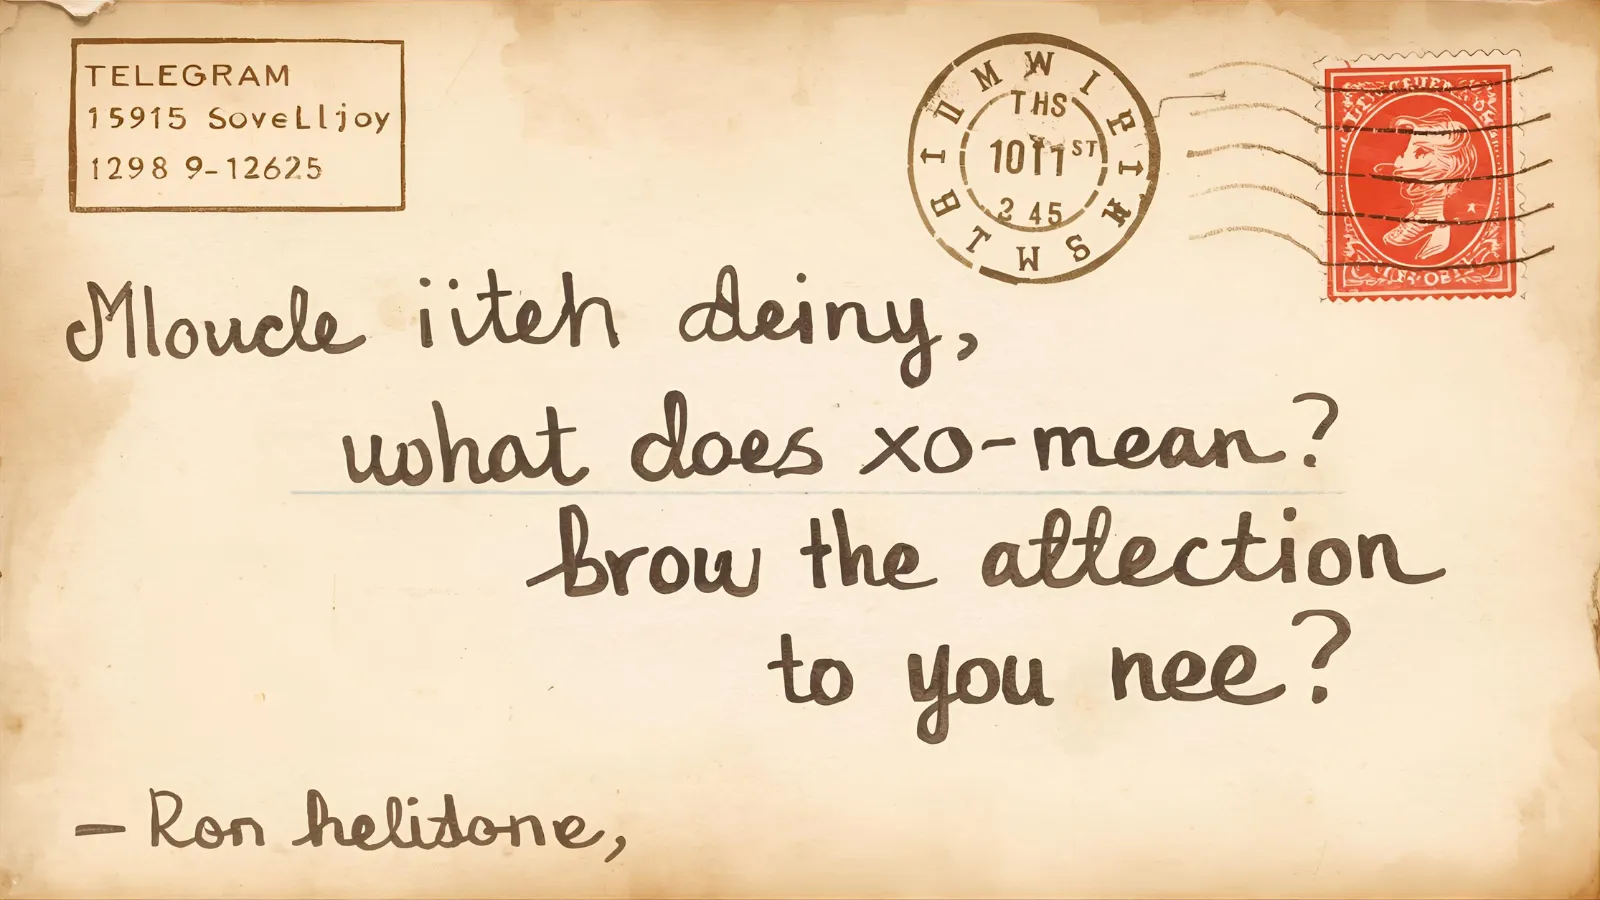 TELEGRAM
15915 Sovelljoy
1298 9-12625
THS
10 1 1 ST
2 45
Mloucle iiteh deiny,
what does xo-mean?
brow the attection
to you nee?
– Ron helitone,